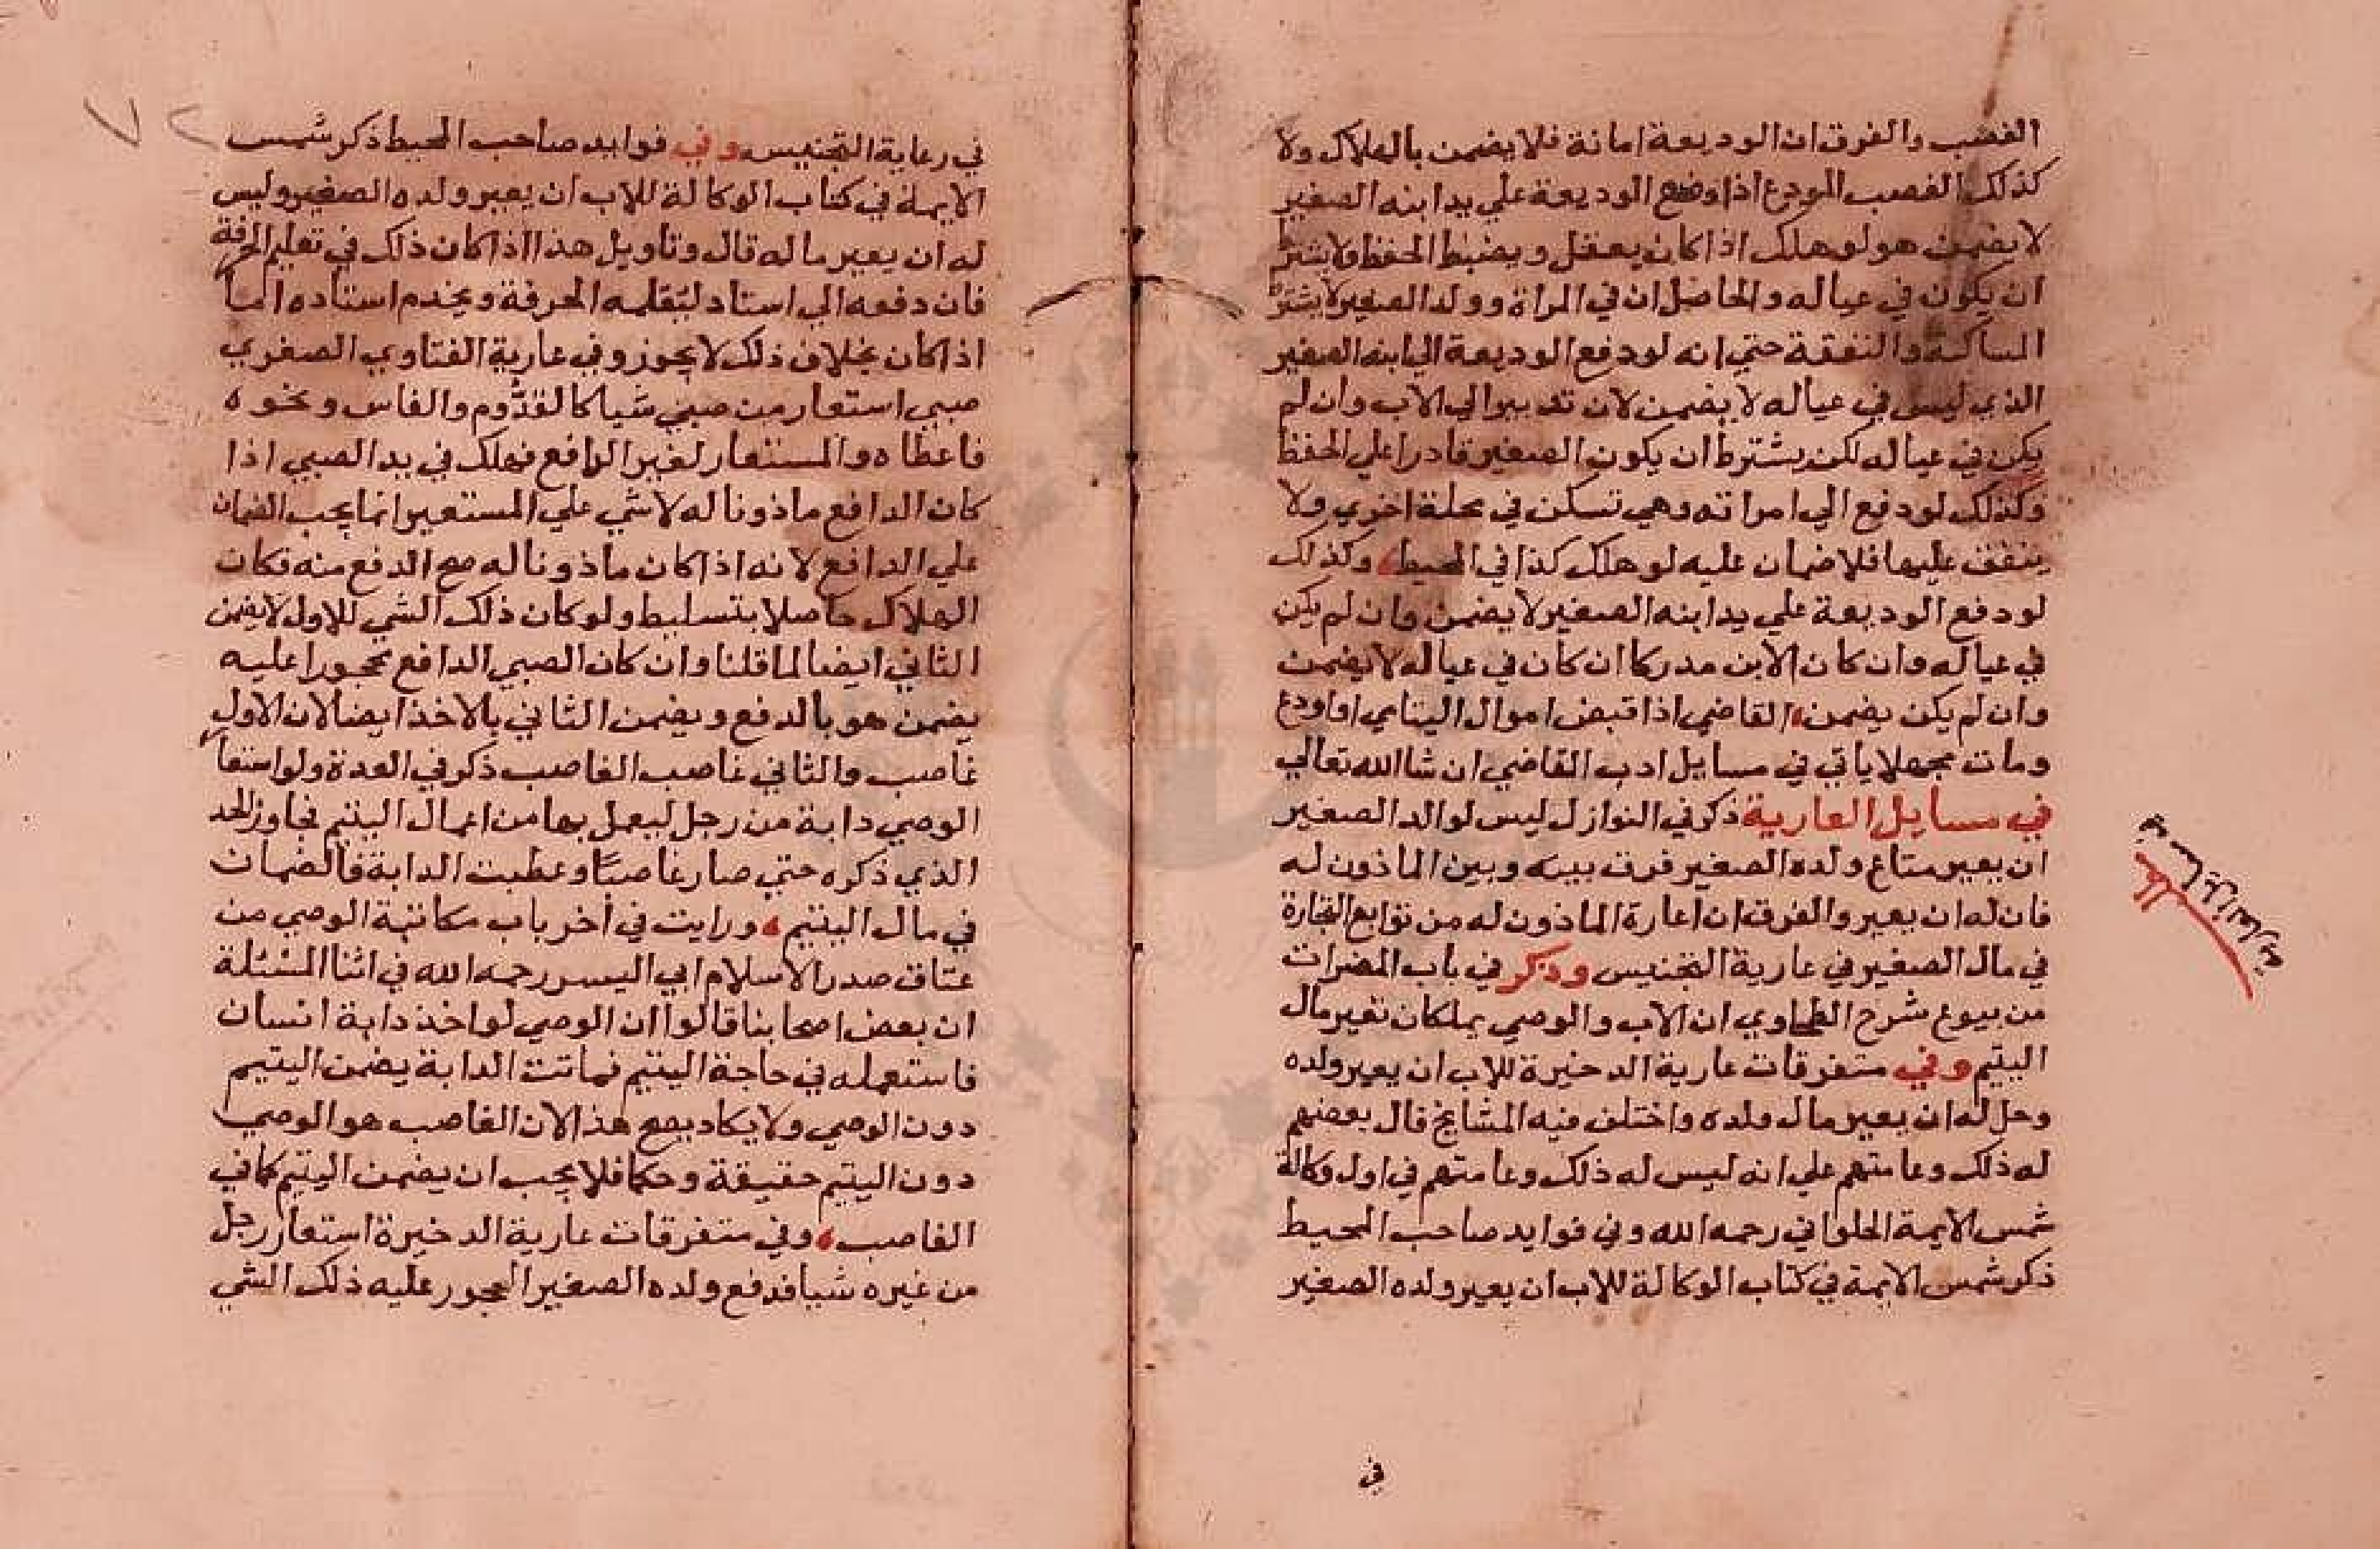 الغصب والفرق ان الوديعة امانة فلا يضمن بالهلاك ولا
كذلك الغصب المودع اذا وضع الوديعة علي يد ابنه الصغير
لا يضمن هو لو هلك اذا كان يعقل ويضبط الحفظ ولا يشترط
ان يكون في عياله والحاصل ان في المراة وولد الصغير لا يشترط
المساكنة والنفقة حتي انه لو دفع الوديعة الي ابنه الصغير
الذي ليس في عياله لا يضمن لان تدبيره الي الاب وان لم
يكن في عياله لكن يشترط ان يكون الصغير قادرا علي الحفظ
وكذلك لو دفع الي امراته وهي تسكن في محلة اخري ولا
ينفق عليها فلا ضمان عليه لو هلك كذا في المحيط وكذلك
لو دفع الوديعة علي يد ابنه الصغير لا يضمن وان لم يكن
في عياله وان كان الابن مدركا ان كان في عياله لا يضمن
وان لم يكن يضمن القاضي اذا قبض اموال اليتامي او اودع
ومات مجهلا ياتي في مسايل ادب القاضي ان شا الله تعالي
في مسايل العارية ذكر في النوازل ليس لوالد الصغير
ان يعير متاع ولده الصغير فرق بينه وبين الماذون له
فان له ان يعير والفرق ان اعارة الماذون له من توابع التجارة
في مال الصغير في عارية التجنيس وذكر في باب المضرات
من بيوع شرح الطحاوي ان الاب والوصي يملكان تغير مال
اليتيم وفي متفرقات عارية الدخيرة للاب ان يعير ولده
وحل له ان يعير مال ولده واختلف فيه المشايخ قال بعضهم
له ذلك وعامتهم علي انه ليس له ذلك وعامتهم في اول وكالة
شمس الايمة الحلواني رحمه الله وفي فوايد صاحب المحيط
ذكر شمس الايمة في كتاب الوكالة للاب ان يعير ولده الصغير
في
في رعاية التجنيس وفي فوايد صاحب المحيط ذكر شمس
الايمة في كتاب الوكالة للاب ان يعير ولده الصغير وليس
له ان يعير ماله قال وتاويل هذا اذا كان ذلك في تعليم الحرفة
فان دفعه الي استاد ليتعلمه الحرفة ويخدم استاده اما
اذا كان بخلاف ذلك لا يجوز وفي عارية الفتاوي الصغري
صبي استعار من صبي شيا كالقدوم والفاس ونحوه
فاعطاه والمستعار لغير الدافع فهلك في يد الصبي اذا
كان الدافع ماذونا له لا شي علي المستعير انما يجب الضمان
علي الدافع لانه اذا كان ماذونا له صح الدفع منه فكان
الهلاك حاصلا بتسليط ولو كان ذلك الشي للاول لا يضمن
الثاني ايضا لما قلنا وان كان الصبي الدافع محجورا عليه
يضمن هو بالدفع ويضمن الثاني بالاخذ ايضا لان الاول
غاصب والثاني غاصب الغاصب ذكر في العدة ولو استعار
الوصي دابة من رجل ليعمل بها من اعمال اليتيم فجاوز الحد
الذي ذكره حتي صار غاصبا وعطبت الدابة فالضمان
في مال اليتيم ورايت في اخر باب مكاتبة الوصي من
عتاق صدر الاسلام ابي اليسر رحمه الله في اثنا المسئلة
ان بعض اصحابنا قالوا ان الوصي لو اخذ دابة انسان
فاستعمله في حاجة اليتيم فماتت الدابة يضمن اليتيم
دون الوصي ولا يكاد يصح هذا لان الغاصب هو الوصي
دون اليتيم حقيقة وحكما فلا يجب ان يضمن اليتيم كما في
الغاصب وفي متفرقات عارية الدخيرة استعار رجل
من غيره شيا فدفع ولده الصغير المحجور عليه ذلك الشي